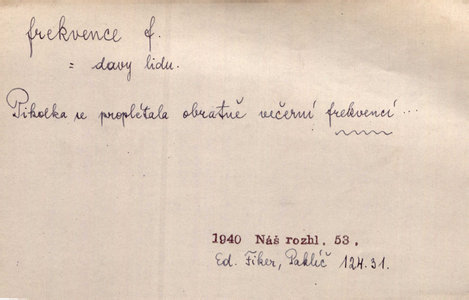 frekvence f.
= davy lidu.
Pikolka se proplétala obratně večerní frekvencí ...
1940 Náš rozhl. 53.
Ed. Fiker, Paklíč 124.31.